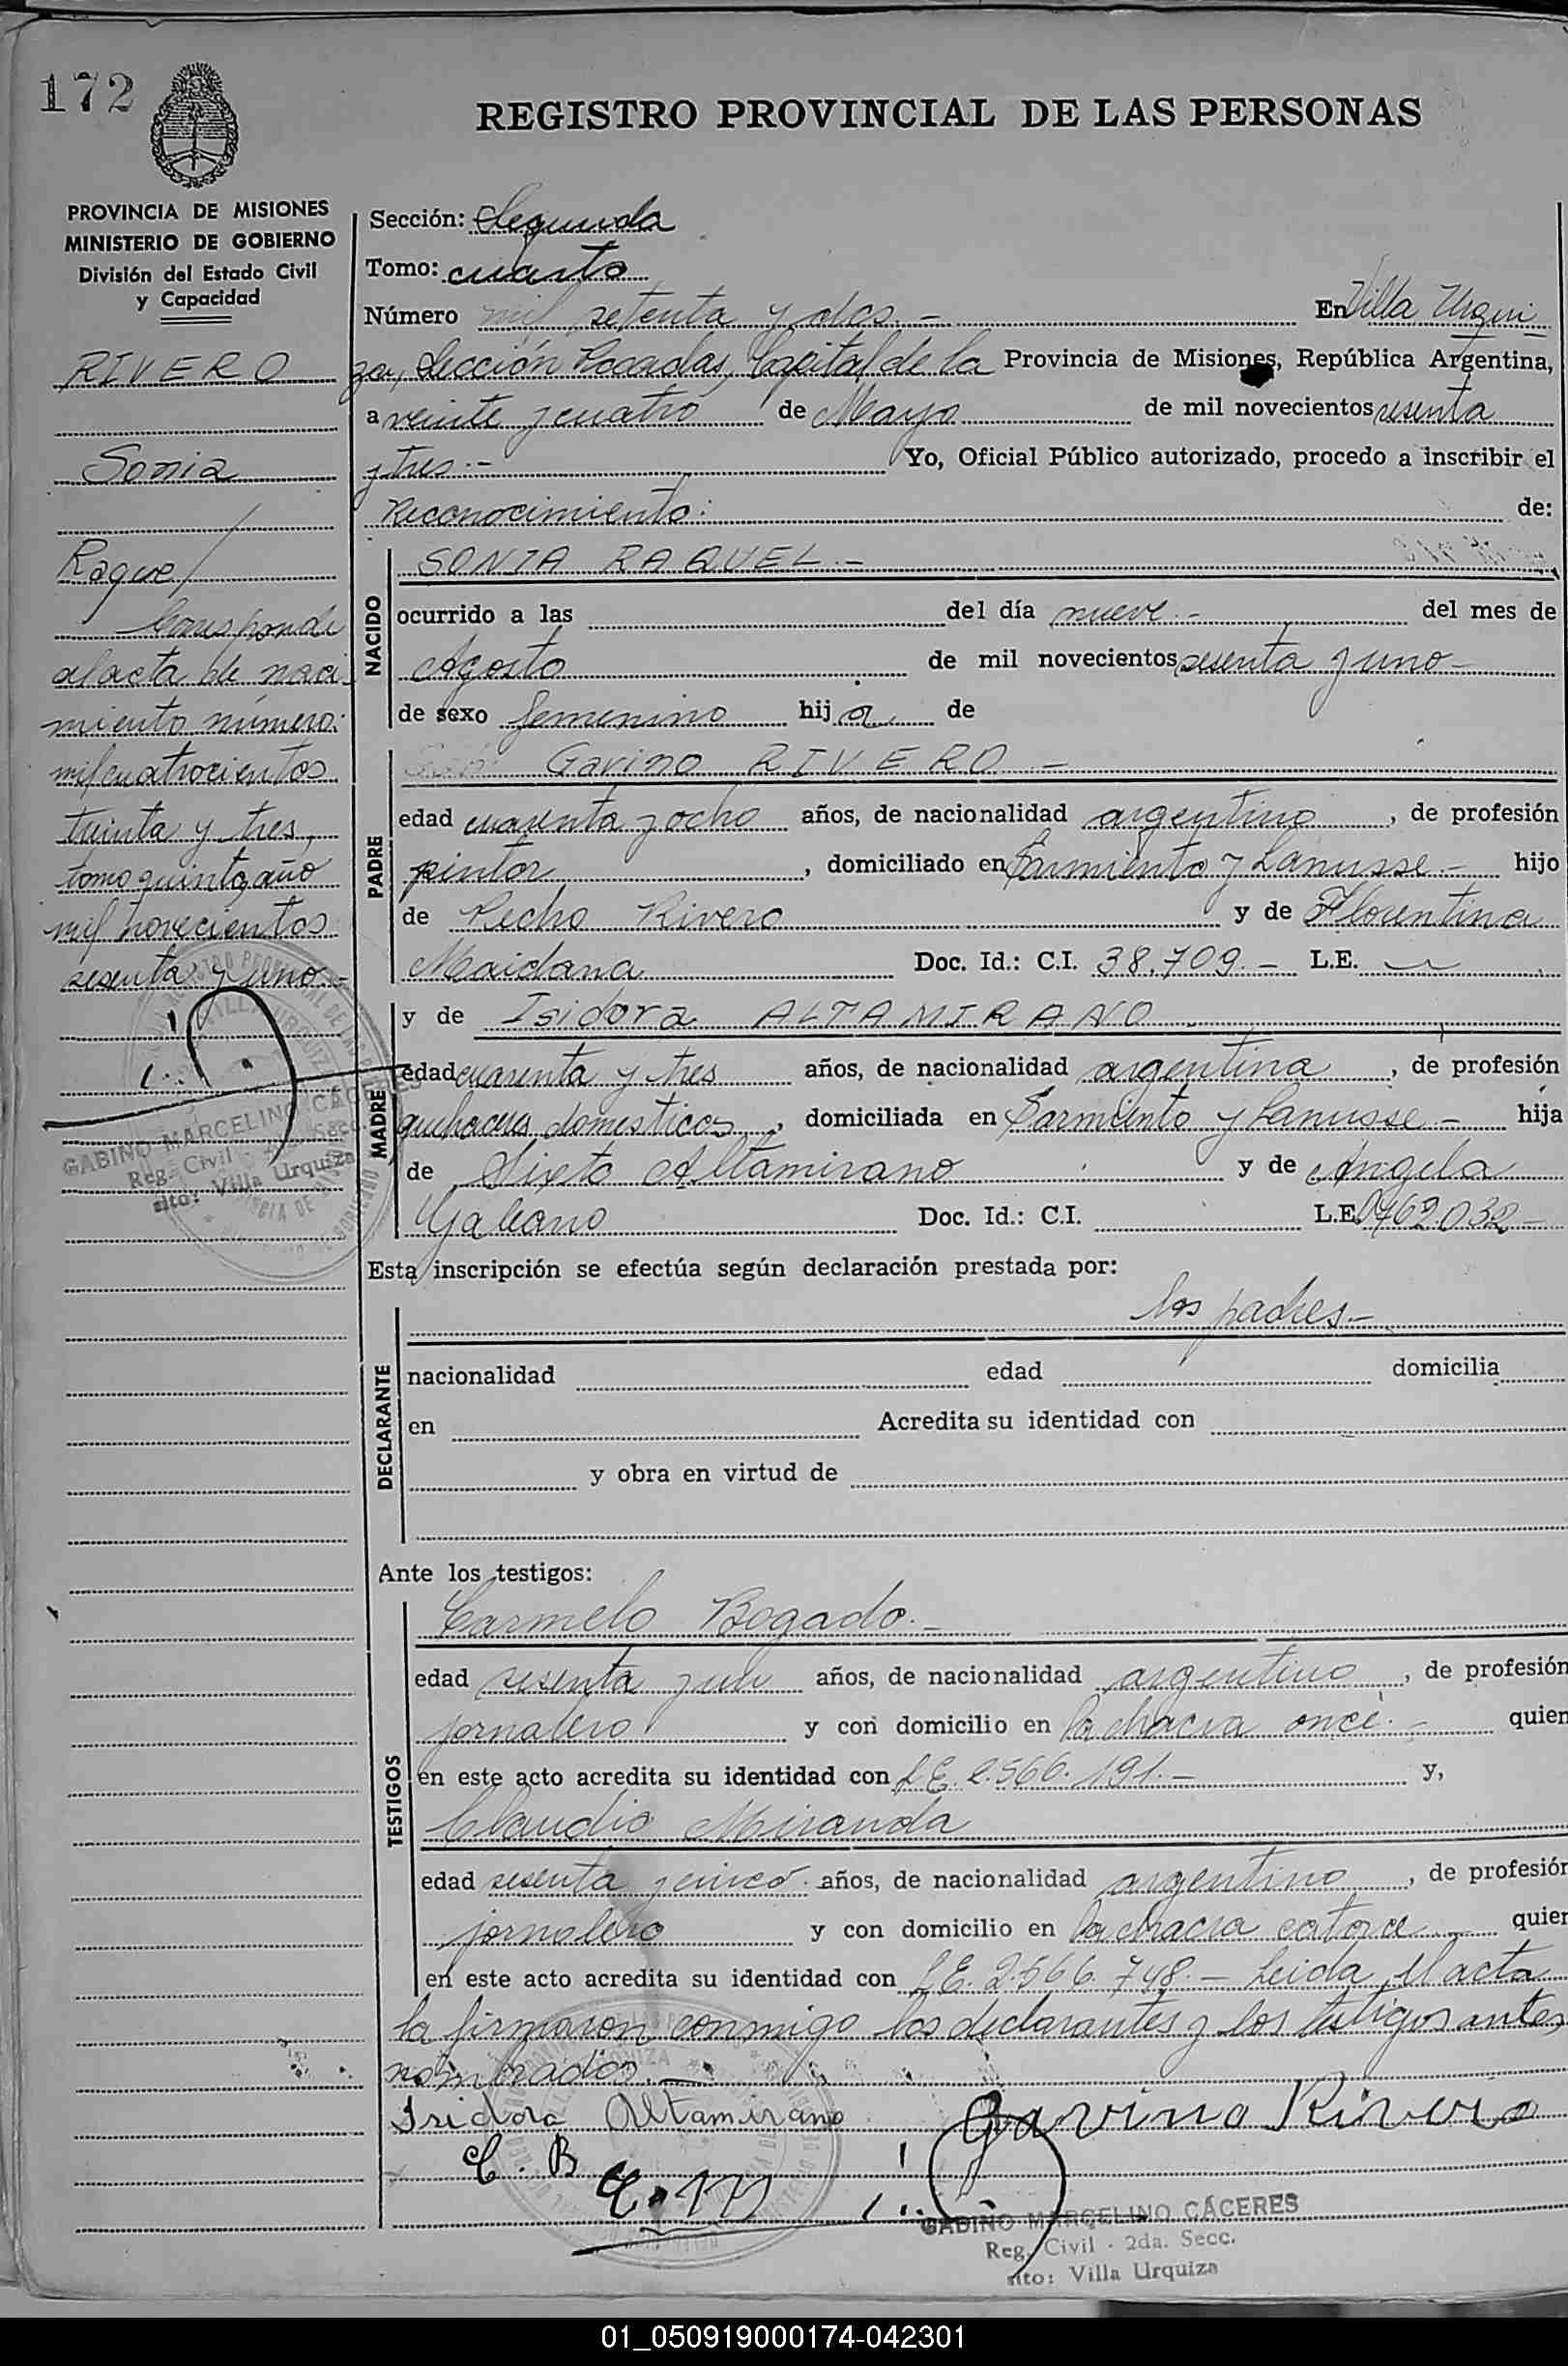 172
REGISTRO PROVINCIAL DE LAS PERSONAS
PROVINCIA DE MISIONES
MINISTERIO DE GOBIERNO
División del Estado Civil
y Capacidad
RIVERO
Sonia
Raquel
Corresponde
al acta de naci
miento número:
mil cuatrocientos
treinta y tres,
tomo quinto, año
mil novecientos
sesenta y uno.-
GABINO MARCELINO CÁCERES
Reg. Civil Secc.
sito: Villa Urquiza
Sección: Segunda
Tomo: cuarto
Número mil setenta y dos.- En Villa Urqui
za, Sección Posadas, Capital de la Provincia de Misiones, República Argentina,
a veinte y cuatro de Mayo de mil novecientos sesenta
y tres.- Yo, Oficial Público autorizado, procedo a inscribir el
Reconocimiento: de:
NACIDO
SONIA RAQUEL.-
ocurrido a las del día nueve.- del mes de
Agosto de mil novecientos sesenta y uno-
de sexo femenino hija de
PADRE
Gavino RIVERO.-
edad cuarenta y ocho años, de nacionalidad argentino, de profesión
pintor, domiciliado en Sarmiento y Lanusse.- hijo
de Pedro Rivero y de Florentina
Maidana Doc. Id.: C.I. 38.709.- L.E.
MADRE
y de Isidora ALTAMIRANO
edad cuarenta y tres años, de nacionalidad argentina, de profesión
quehaceres domesticos, domiciliada en Sarmiento y Lanusse- hija
de Sixto Altamirano y de Angela
Galeano Doc. Id.: C.I. L.E. 0762.032-
Esta inscripción se efectúa según declaración prestada por:
DECLARANTE
los padres.-
nacionalidad edad domicilia
en Acredita su identidad con
y obra en virtud de
Ante los testigos:
TESTIGOS
Carmelo Bogado.-
edad sesenta y un años, de nacionalidad argentino, de profesión
jornalero y con domicilio en la chacra once.- quien
en este acto acredita su identidad con L.E. 2.566.191.- y,
Claudio Miranda
edad sesenta y cinco años, de nacionalidad argentino, de profesión
jornalero y con domicilio en la chacra catorce quien
en este acto acredita su identidad con L.E. 2.566.748.- Leida el acta
la firmaron conmigo los declarantes y los testigos antes
nombrados.-
Isidora Altamirano Gavino Rivero
C. B
C. M
GABINO MARCELINO CÁCERES
Reg. Civil - 2da. Secc.
sito: Villa Urquiza
01_050919000174-042301